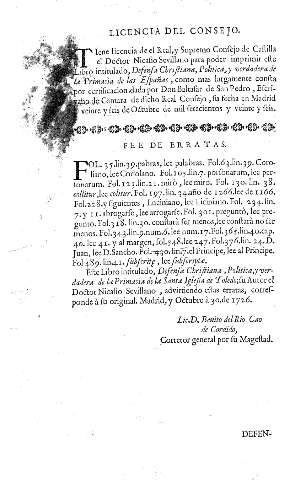 LICENCIA DEL CONSEJO.
Tiene licencia de el Real, y Supremo Consejo de Castilla
el Doctor Nicasio Sevillano para poder imprimir este
Libro intitulado, Defensa Christiana, Politica, y verdadera de
la Primacia de las Españas, como mas largamente consta
por certificacion dada por Don Baltasar de San Pedro, Escri-
vano de Camara de dicho Real Consejo, su fecha en Madrid
à veinte y seis de Octubre de mil setecientos y veinte y seis.
FEE DE ERRATAS.
FOL. 35. lin. 39. pabras, lee palabras. Fol. 63. lin. 39. Coro-
liano, lee Coriolano. Fol. 105. lin. 7. porsonarum, lee per-
sonarum. Fol. 123. lin. 21. mirò, lee miro. Fol. 130. lin. 38.
collitur, lee colitur. Fol. 197. lin. 34. año de 1266. lee de 1166.
Fol. 228. y siguientes, Luciniano, lee Liciniano. Fol. 234. lin.
7. y 11. abrogasse, lee arrogasse. Fol. 301. preguntò, lee pregun-
to. Fol. 318. lin. 20. constarà ser menos, lee constarà no ser
menos. Fol. 343. lin. 9. num. 6, lee num. 17. Fol. 367. lin. 40. cap.
40. lee 41. y al margen, fol. 248. lee 247. Fol. 376. lin. 24. D.
Juan, lee D. Sancho. Fol. 440. lin. 7. el Principe, lee al Principe.
Fol. 489. lin. 41. subscrite, lee subscripta.
Este Libro intitulado, Defensa Christiana, Politica, y ver-
dadera de la Primacia de la Santa Iglesia de Toledo, su Autor el
Doctor Nicasio Sevillano, advirtiendo estas erratas, corres-
ponde à su original. Madrid, y Octubre à 30. de 1726.
Lic. D. Benito del Rio Cao
de Cordido,
Corrector general por su Magestad.
DEFEN-